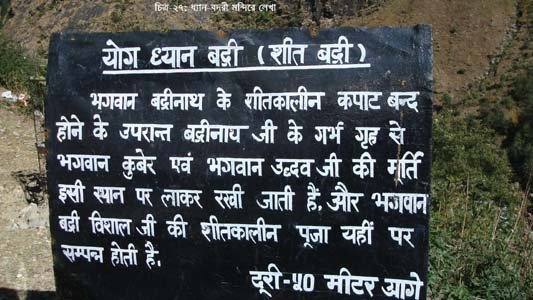 চিত্র ২৭: ধ্যান বদরী মন্দিরে লেখা
योग ध्यान बद्री ( शीत बद्री )
भगवान बद्रीनाथ के शीतकालीन कपाट बन्द
होने के उपरान्त बद्रीनाथ जी के गर्भ गृह से
भगवान कुबेर एवं भगवान उद्धव जी की मूर्ति
इसी स्थान पर लाकर रखी जाती हैं. और भगवान
बद्री विशाल जी की शीतकालीन पूजा यहीं पर
सम्पन्न होती है.
दूरी-५० मीटर आगे